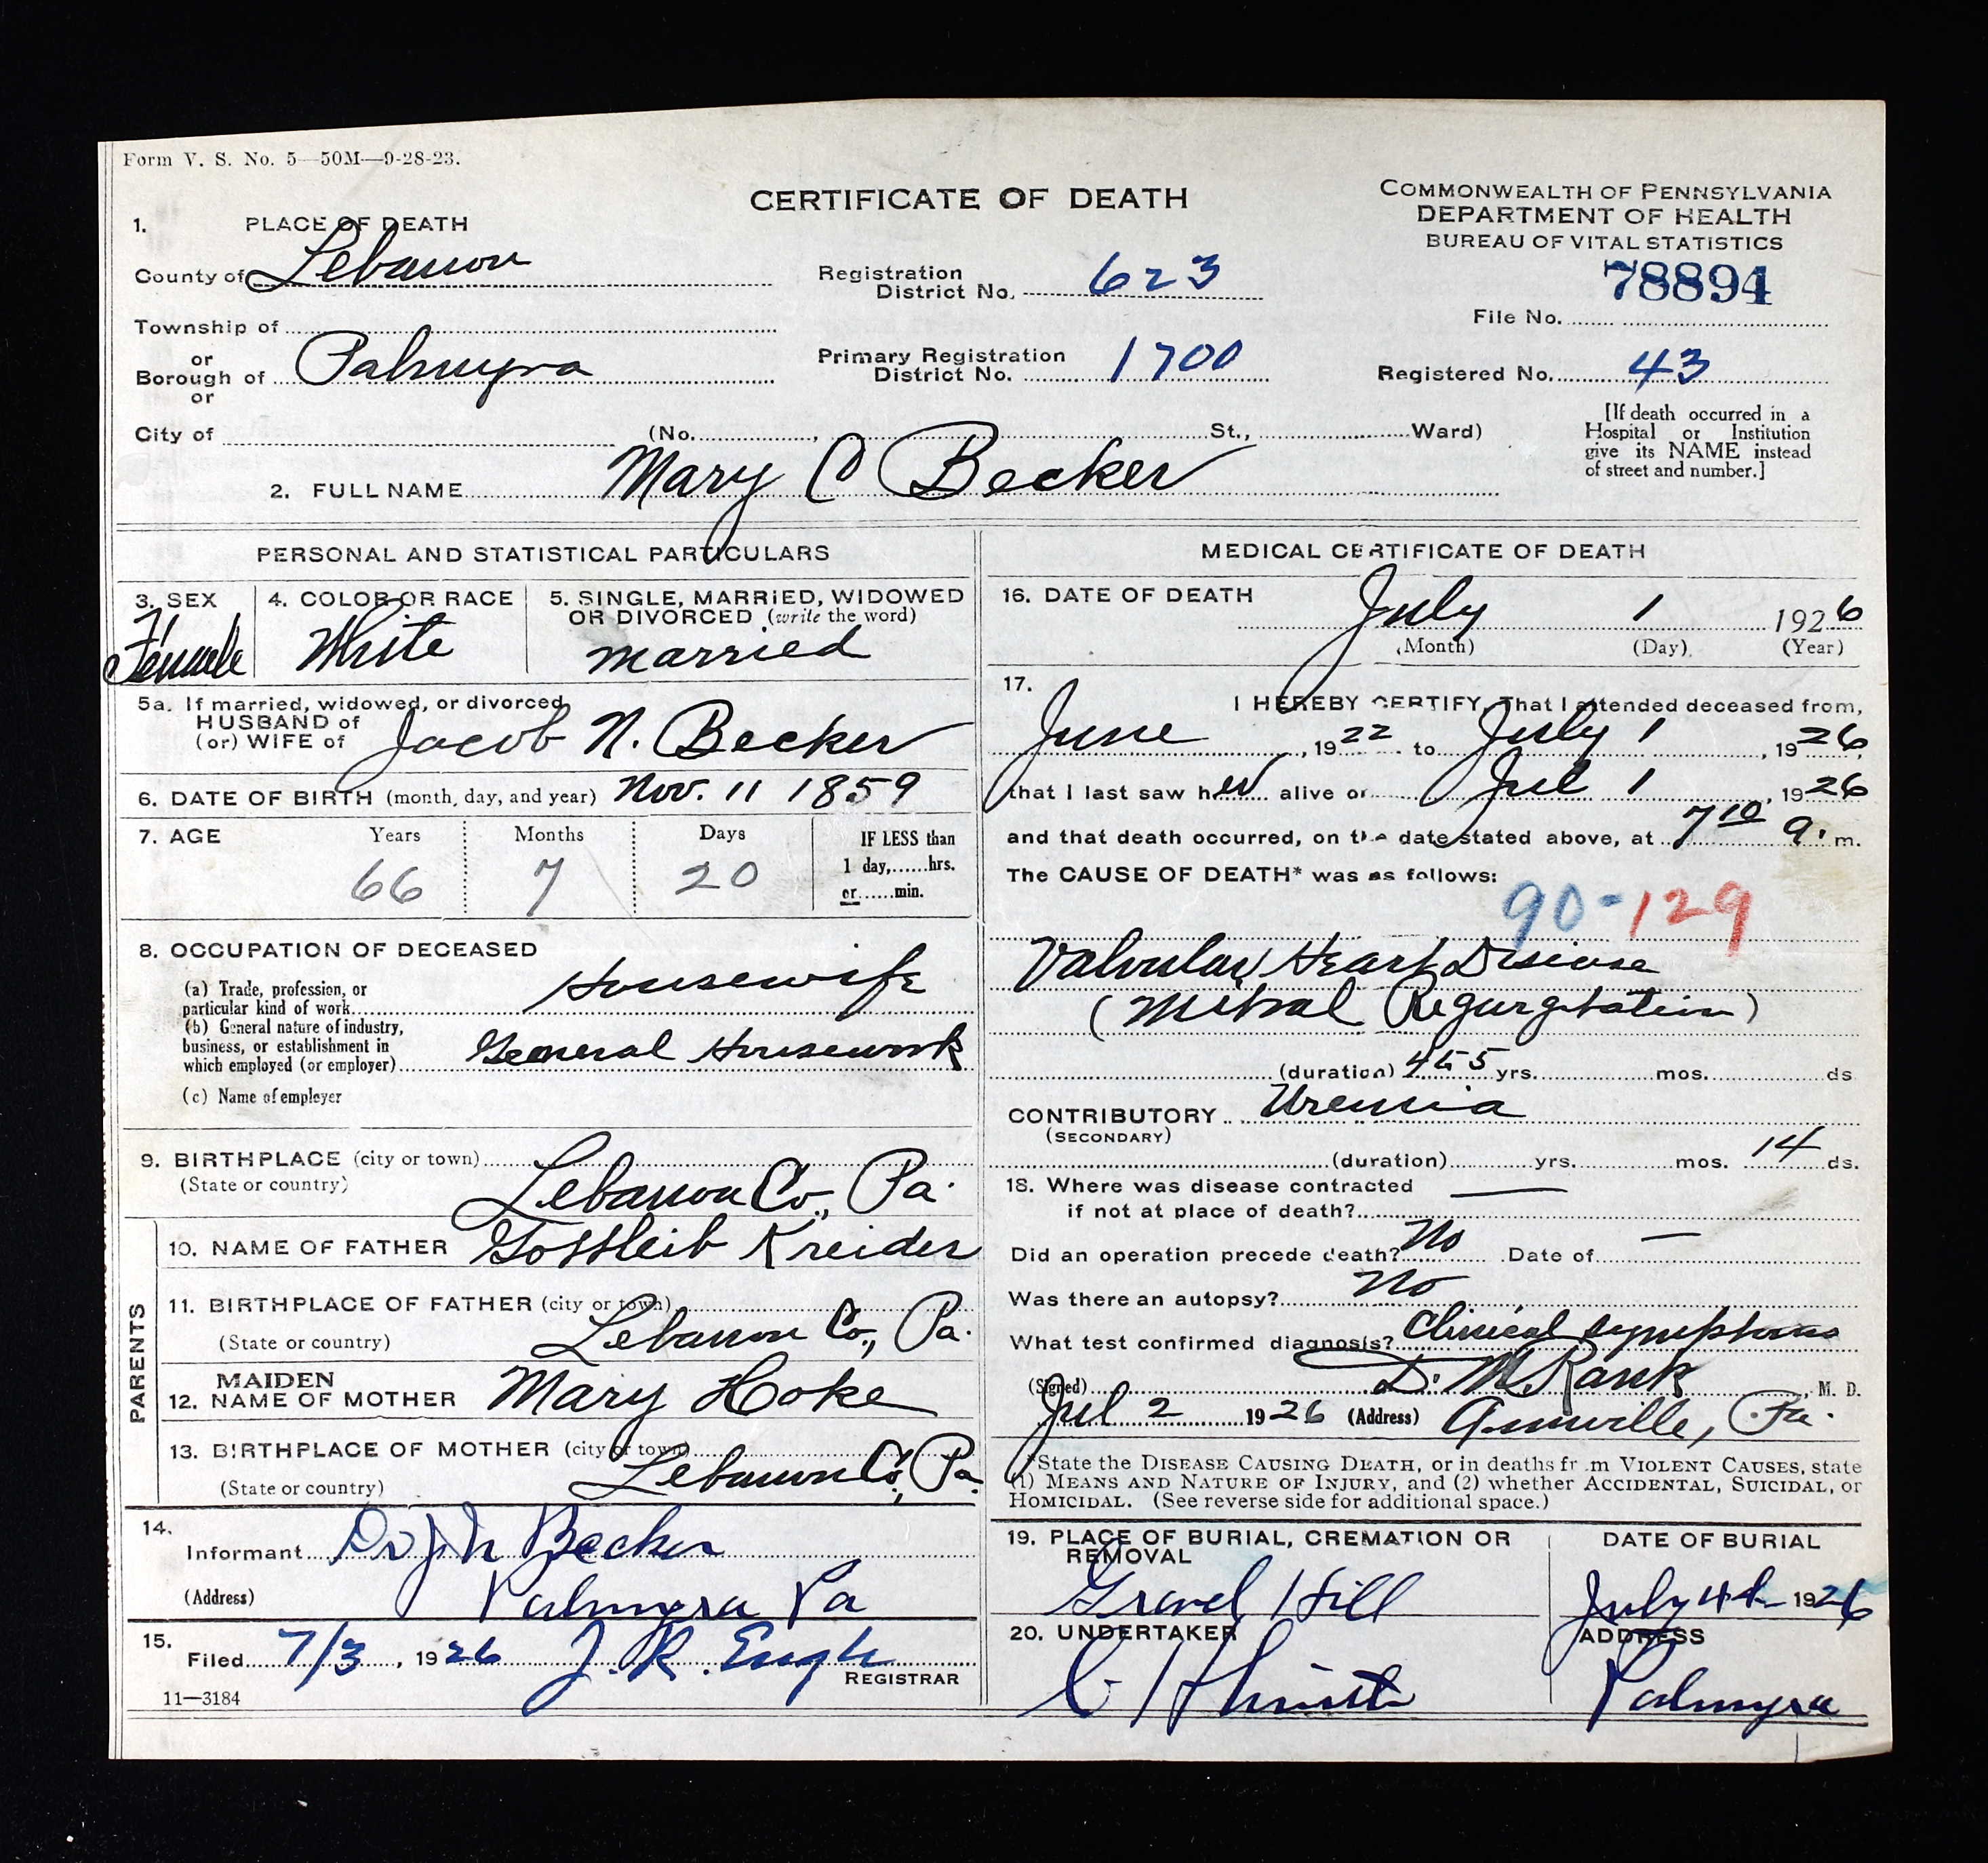 Form V. S. No. 5—50M—9-28-23.
CERTIFICATE OF DEATH
COMMONWEALTH OF PENNSYLVANIA
DEPARTMENT OF HEALTH
BUREAU OF VITAL STATISTICS
1. PLACE OF DEATH
County of Lebanon
Registration District No. 623
78894
File No.
Township of
or
Borough of Palmyra
or
Primary Registration District No. 1700
Registered No. 43
City of (No. , St., Ward)
[If death occurred in a Hospital or Institution give its NAME instead of street and number.]
2. FULL NAME Mary C Becker
PERSONAL AND STATISTICAL PARTICULARS
3. SEX
Female
4. COLOR OR RACE
White
5. SINGLE, MARRIED, WIDOWED OR DIVORCED (write the word)
married
5a. If married, widowed, or divorced
HUSBAND of
(or) WIFE of Jacob N. Becker
6. DATE OF BIRTH (month, day, and year) Nov. 11 1859
7. AGE Years Months Days
66 7 20
IF LESS than
1 day,......hrs.
or......min.
8. OCCUPATION OF DECEASED
(a) Trade, profession, or particular kind of work Housewife
(b) General nature of industry, business, or establishment in which employed (or employer) General Housework
(c) Name of employer
9. BIRTHPLACE (city or town)
(State or country) Lebanon Co., Pa.
PARENTS
10. NAME OF FATHER Gottleib Kreider
11. BIRTHPLACE OF FATHER (city or town)
(State or country) Lebanon Co., Pa.
12. MAIDEN NAME OF MOTHER Mary Hoke
13. BIRTHPLACE OF MOTHER (city or town)
(State or country) Lebanon Co., Pa.
14.
Informant Dr Becker
(Address) Palmyra Pa
15.
Filed 7/3, 1926 J. R.
REGISTRAR
11—3184
MEDICAL CERTIFICATE OF DEATH
16. DATE OF DEATH
July 1 1926
(Month) (Day) (Year)
17. I HEREBY CERTIFY, That I attended deceased from,
June, 1922 to July 1, 1926,
that I last saw her alive on Jul 1, 1926
and that death occurred, on the date stated above, at 7 10 a. m.
The CAUSE OF DEATH* was as follows:
90-129
Valvular Heart Disease
(Mitral Regurgitation)
(duration) yrs. mos. ds
CONTRIBUTORY Uremia
(SECONDARY)
(duration) yrs. mos. 14 ds.
18. Where was disease contracted
if not at place of death? —
Did an operation precede death? No Date of —
Was there an autopsy? No
What test confirmed diagnosis? Clinical symptoms
(Signed) D. M. Rank, M. D.
Jul 2 1926 (Address) Annville, Pa.
*State the DISEASE CAUSING DEATH, or in deaths from VIOLENT CAUSES, state
(1) MEANS AND NATURE OF INJURY, and (2) whether ACCIDENTAL, SUICIDAL, or
HOMICIDAL. (See reverse side for additional space.)
19. PLACE OF BURIAL, CREMATION OR REMOVAL
Gravel Hill
DATE OF BURIAL
July 4th 1926
20. UNDERTAKER
ADDRESS
Palmyra